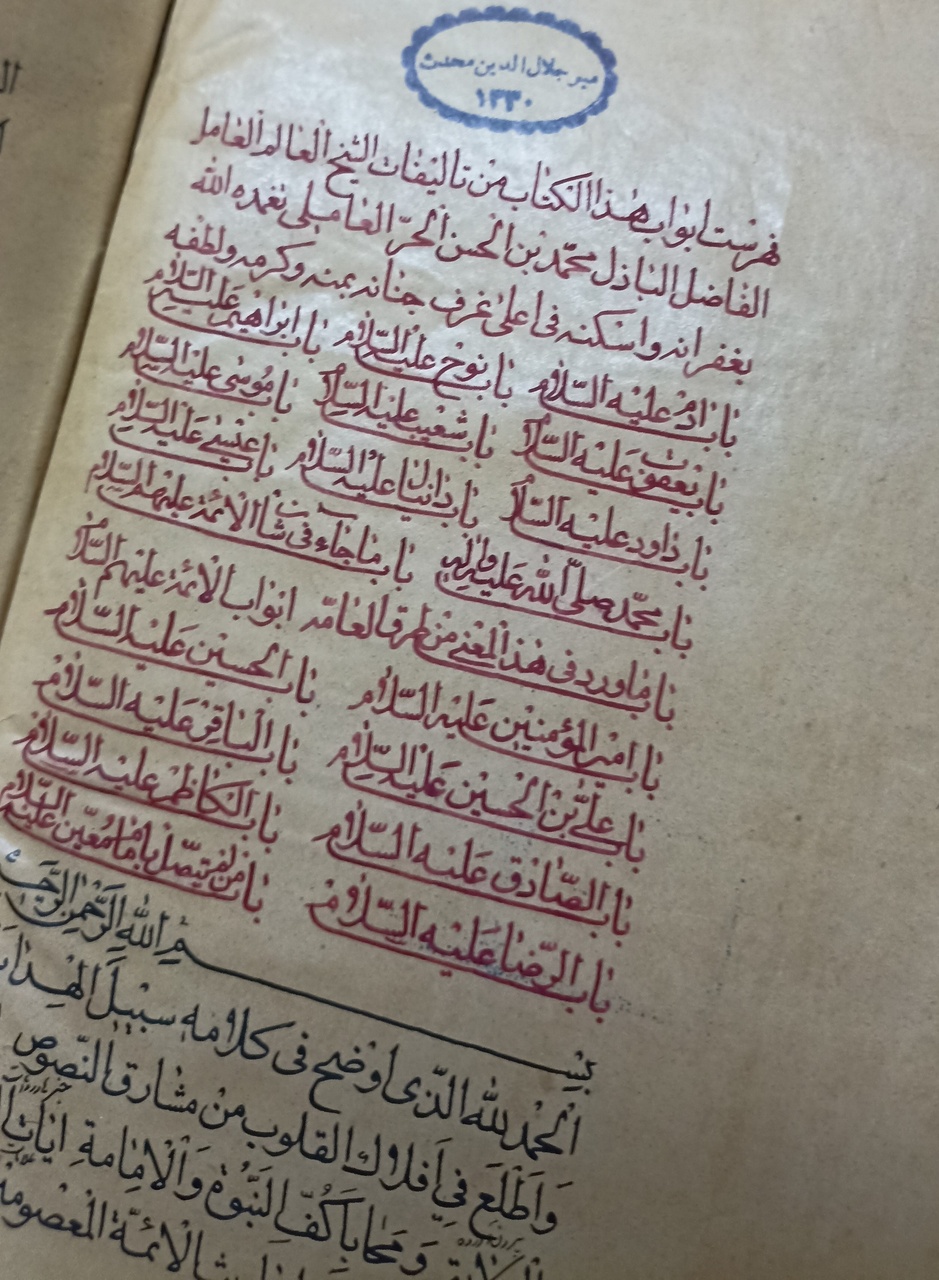 مير جلال الدين محدث
۱۳۳۰
فهرست ابواب هذا الكتاب من تاليفات الشيخ العالم العامل
الفاضل الباذل محمّد بن الحسن الحرّ العاملى تغمده الله
بغفرانه واسكنه فى اعلى غرف جنانه بمنه وكرمه ولطفه
باب ادم عليه السّلام باب نوح عليه السّلام باب ابراهيم عليه السّلام
باب يعقوب عليه السّلام باب شعيب عليه السّلام باب موسى عليه السّلام
باب داود عليه السّلام باب دانيال عليه السّلام باب عيسى عليه السّلام
باب محمّد صلى الله عليه واله باب ما جاء فى شان الائمة عليهم السّلام
باب ما ورد فى هذا المعنى من طرق العامّه ابواب الائمة عليهم السّلام
باب امير المؤمنين عليه السّلام باب الحسين عليه السّلام
باب علىّ بن الحسين عليه السّلام باب الباقر عليه السّلام
باب الصّادق عليه السّلام باب الكاظم عليه السّلام
باب الرّضا عليه السّلام باب من لم يتصل بامام معين عليهم السّلام
بسم الله الرّحمن الرّحيم
الحمد لله الّذى اوضح فى كلامه سبيل
وَاَطْلَعَ فى اَفلاك القلوب من مشارق النّصوص
وَمَحا بِاَكُفّ النّبُوّة وَالْامامة ايات
الائمّة